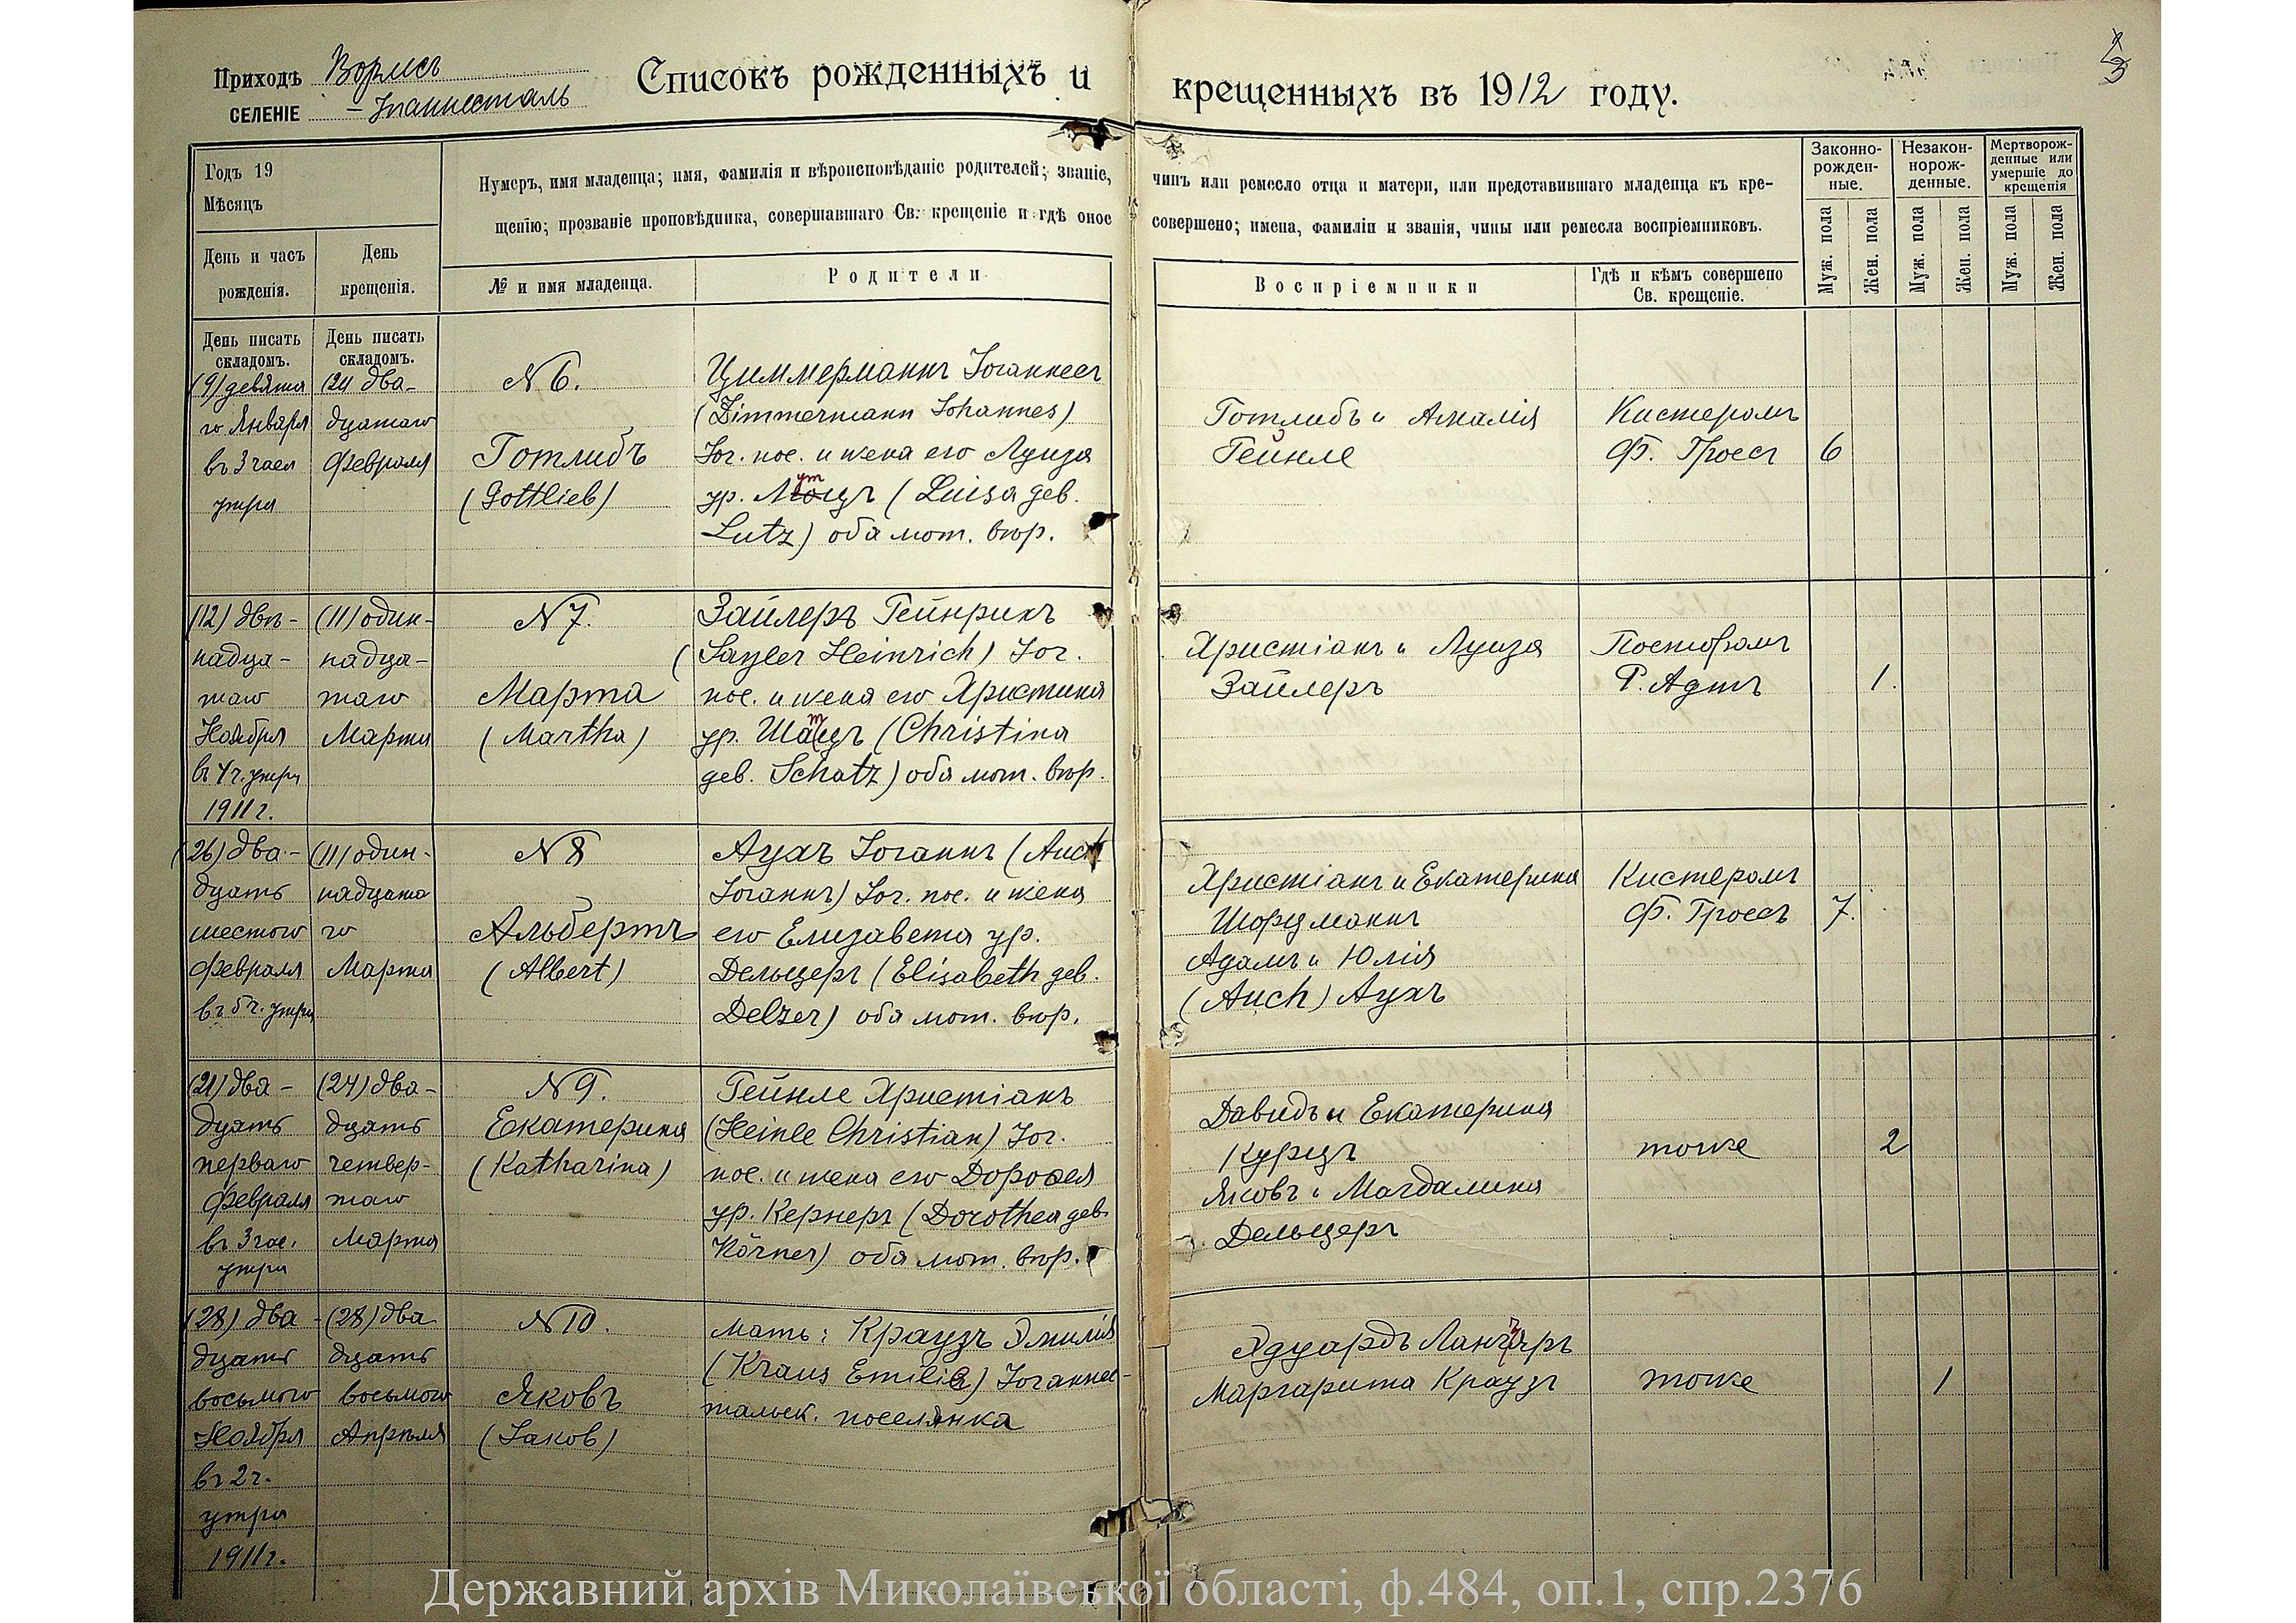 Приходъ Вормсъ
СЕЛЕНІЕ - Іоаннесталь
Списокъ рожденныхъ и крещенныхъ въ 1912 году.
Годъ 19
Мѣсяцъ
День и часъ рожденія.
День крещенія.
Нумеръ, имя младенца; имя, фамилія и вѣроисповѣданіе родителей; званіе, чинъ или ремесло отца и матери, или представившаго младенца къ кре-
щенію; прозваніе проповѣдника, совершавшаго Св. крещеніе и гдѣ оное совершено; имена, фамиліи и званія, чины или ремесла воспріемниковъ.
№ и имя младенца.
Родители
Воспріемники
Гдѣ и кѣмъ совершено
Св. крещеніе.
Законно-
рожден-
ные.
Незакон-
норож-
денные.
Мертворож-
денные или
умершіе до
крещенія
Муж. пола
Жен. пола
Муж. пола
Жен. пола
Муж. пола
Жен. пола
День писать
складомъ.
День писать
складомъ.
(9) девята
го Января
въ 3 часа
утра
дцатаго
Февраля
N 6.
Готлибъ
(Gottlieb)
Циммерманнъ Іоганнесъ
(Zimmermann Johannes)
Іог. пос. и жена его Луиза
ур. (Luisa geb.
Lutz) оба лют. вѣр.
Готлибъ и Амалія
Гейнле
Кистеромъ
Ф. Гроссъ
6
(12) двѣ-
надца-
таго
Ноября
въ 4 ч. утра
1911 г.
(11) один-
надца-
таго
Марта
N 7.
Марта
(Martha)
Зайлеръ Гейнрихъ
(Sayler Heinrich) Іог.
пос. и жена его Христина
ур. Шатцъ (Christina
geb. Schatz) оба лют. вѣр.
Христіанъ и Луиза
Зайлеръ
Пасторомъ
1.
(26) два-
дцать
шестого
Февраля
(11) один-
надцата
го
Марта
N 8
Альбертъ
(Albert)
Аухъ Іоганнъ (Auch
Іоганнъ) Іог. пос. и жена
его Елизавета ур.
Дельцеръ (Elisabeth geb.
Delzer) оба лют. вѣр.
Христіанъ и Екатерина
Шорцманнъ
Адамъ и Юлія
(Auch) Аухъ
Кистеромъ
Ф. Гроссъ
7.
(21) два-
дцать
перваго
Февраля
въ 3 час.
утра
(24) два-
дцать
четвер-
таго
Марта
N 9.
Екатерина
(Katharina)
Гейнле Христіанъ
(Heinle Christian) Іог.
пос. и жена его Доротея
ур. Кернеръ (Dorothea geb
Körner) оба лют. вѣр.
Давидъ и Екатерина
Курцъ
Яковъ и Магдалина
Дельцеръ
тоже
2
(28) два
дцать
восьмого
Ноября
въ 2 ч.
утра
1911 г.
(28) два
дцать
восьмого
Апрѣля
N 10.
Яковъ
(Jакоb)
Мать: Краузъ Эмилія
(Kraus Emilie) Іоаннес-
тальск. поселянка
Эдуардъ
Маргарита Краузъ
тоже
1
Державний архів Миколаївської області, ф.484, оп.1, спр.2376